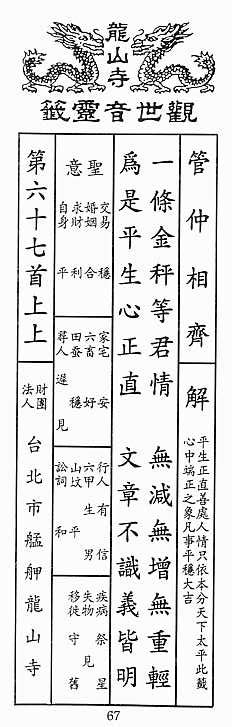 龍山寺
觀世音靈籤
管仲相齊
解
平生正直善處人情只依本分天下太平此籤
心中端正之象凡事平穩大吉
一條金秤等君情 無減無增無重輕
爲是平生心正直 文章不識義皆明
聖意
交易 穩
婚姻 合
求財 利
自身 平
家宅 安
六畜 好
田蚕 穩
尋人 遲見
行人 有信
六甲 生男
山坟 平
訟詞 和
疾病 祭星
失物 見
移徙 守舊
第六十七首上上
財團法人
台北市艋舺龍山寺
67